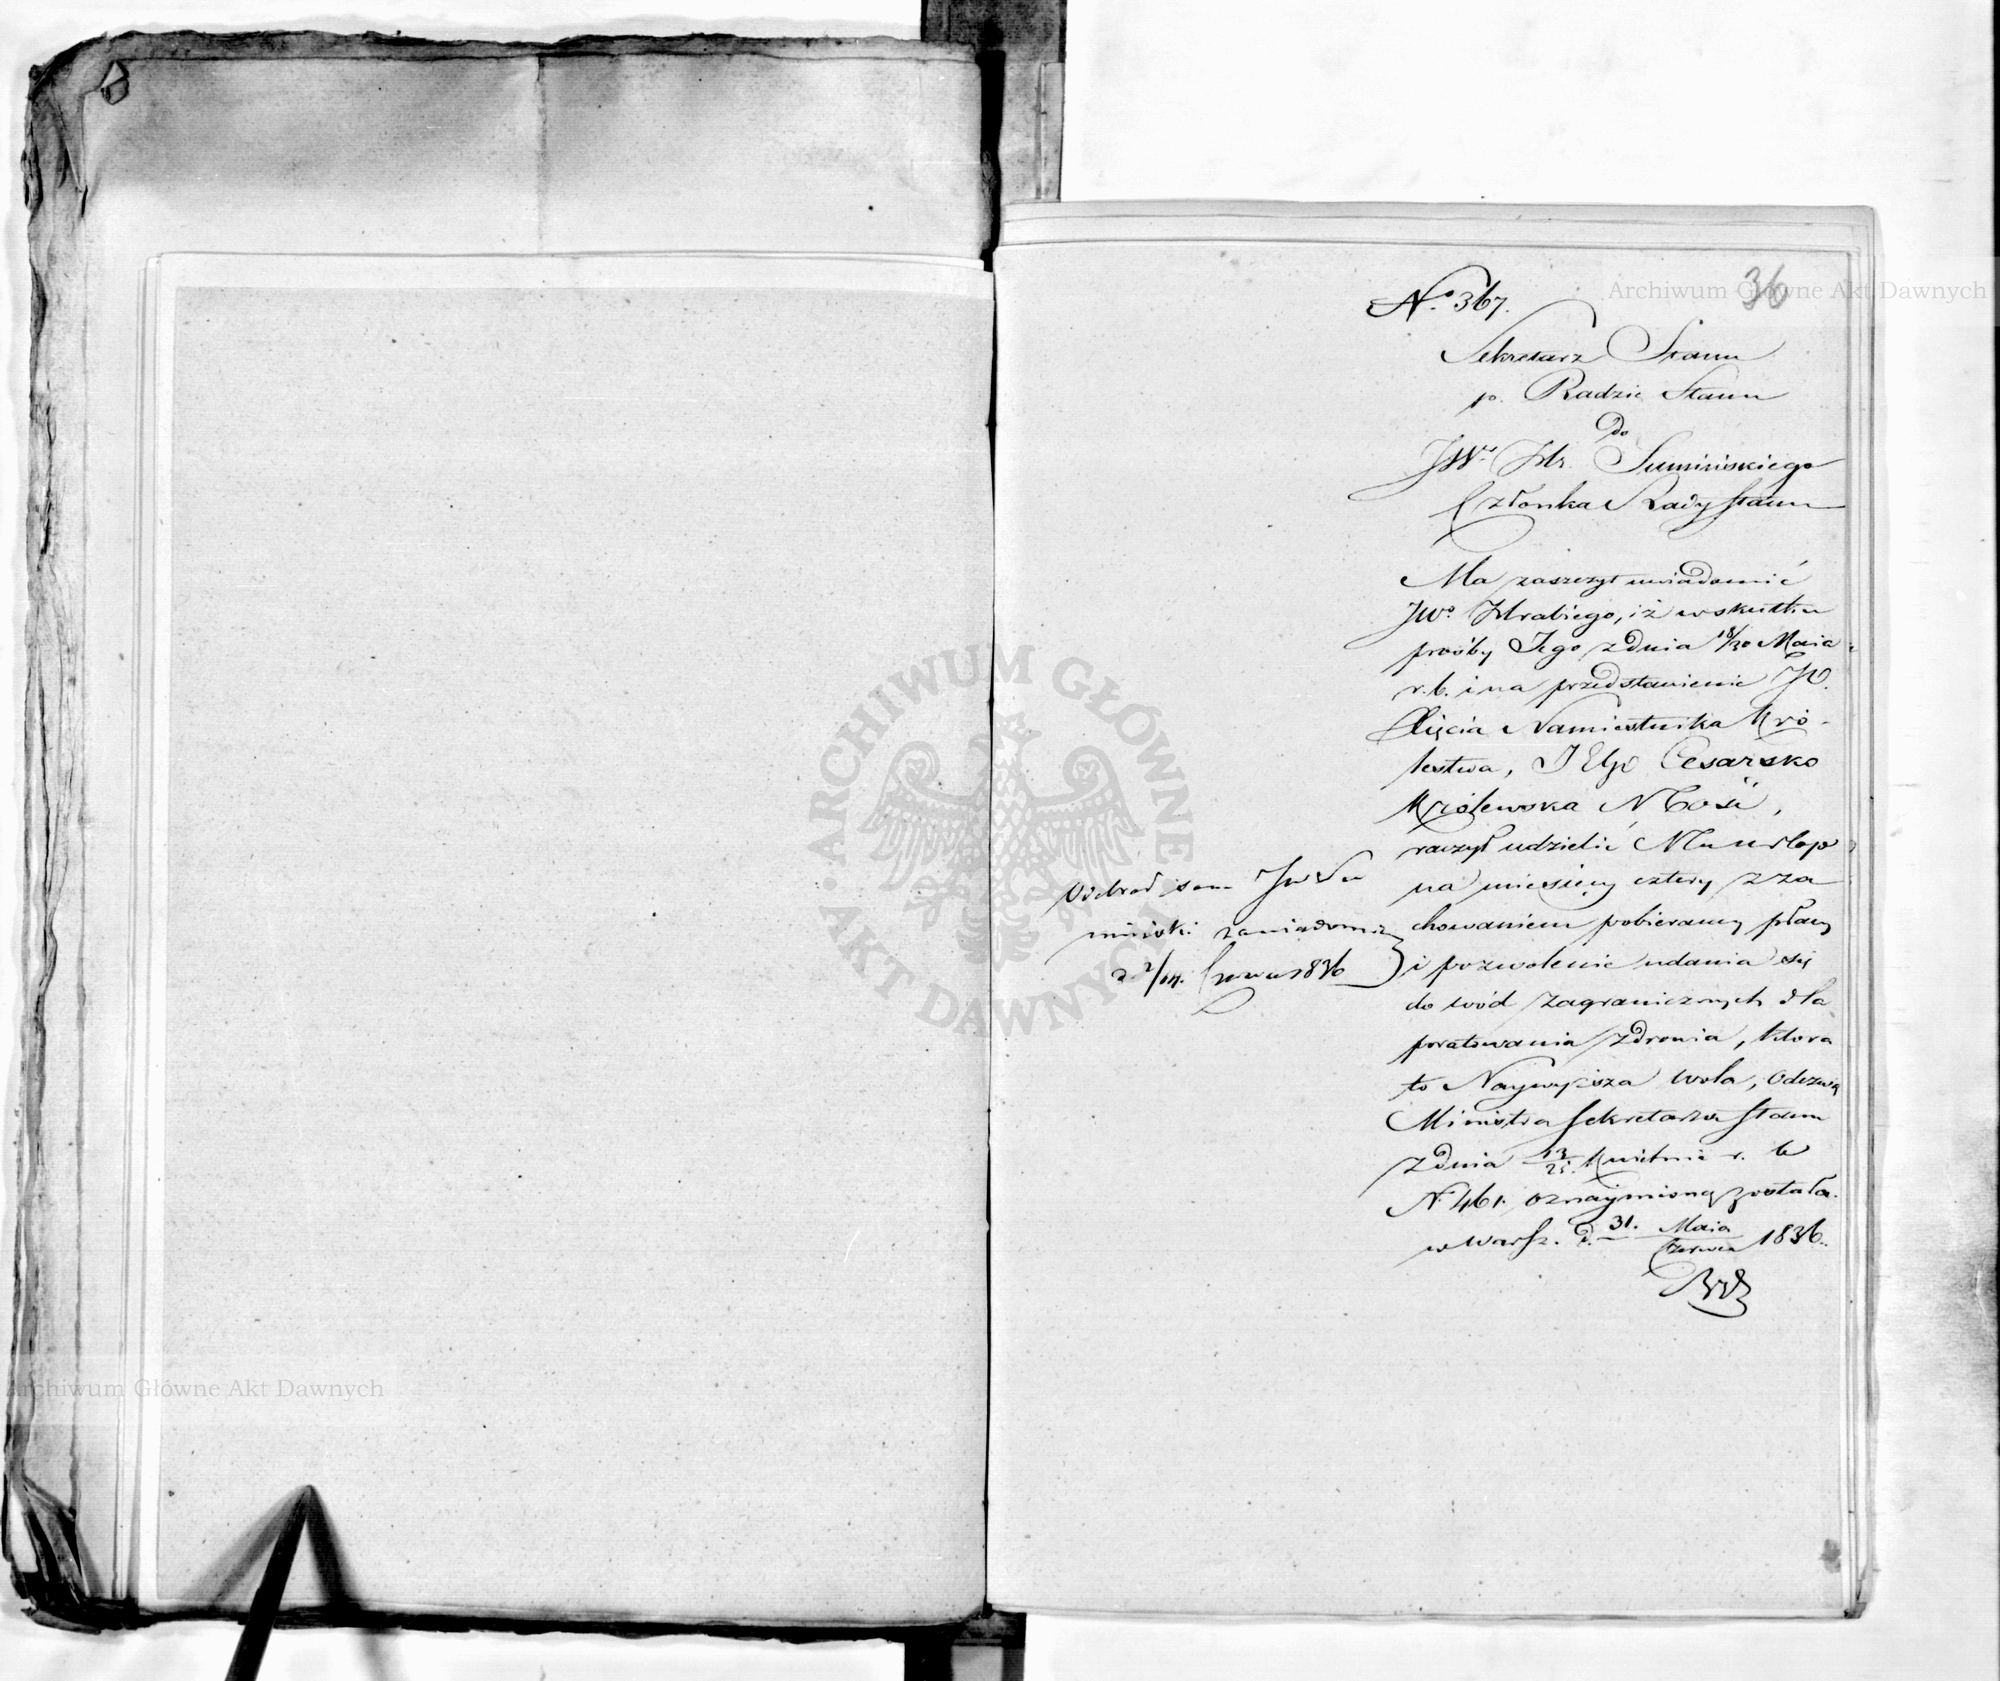 36
Archiwum Główne Akt Dawnych
No. 367.
Sekretarz Stanu
p. Radzie Stanu
Do
JWo Hr. Sumińskiego
Członka Rady Stanu
Ma zaszczyt uwiadomić
JWo. Hrabiego, iż w skutku
prośby Jego z dnia 18/30 Maia
r. b. i na przedstawienie JO.
Xięcia Namiestnika Kró-
lestwa, JEgo Cesarsko
Królewska Mość,
raczył udzielić Mu urlop
na miesięcy cztery z za
chowaniem pobieraney płacy
i pozwolenie udania się
do wód zagranicznych dla
poratowania zdrowia, która
to Naywyższa wola, Odezwą
Ministra Sekretarza Stanu
z dnia 13/25. Kwietnia r. b
No 461. oznaymioną została.
w Warsz. d. 31. Maia / Czerwca 1836.
Odebrał sam JW Su
miński zawiadomie
d 2/14. Czerwca 1836
ARCHIWUM GŁÓWNE AKT DAWNYCH
Archiwum Główne Akt Dawnych